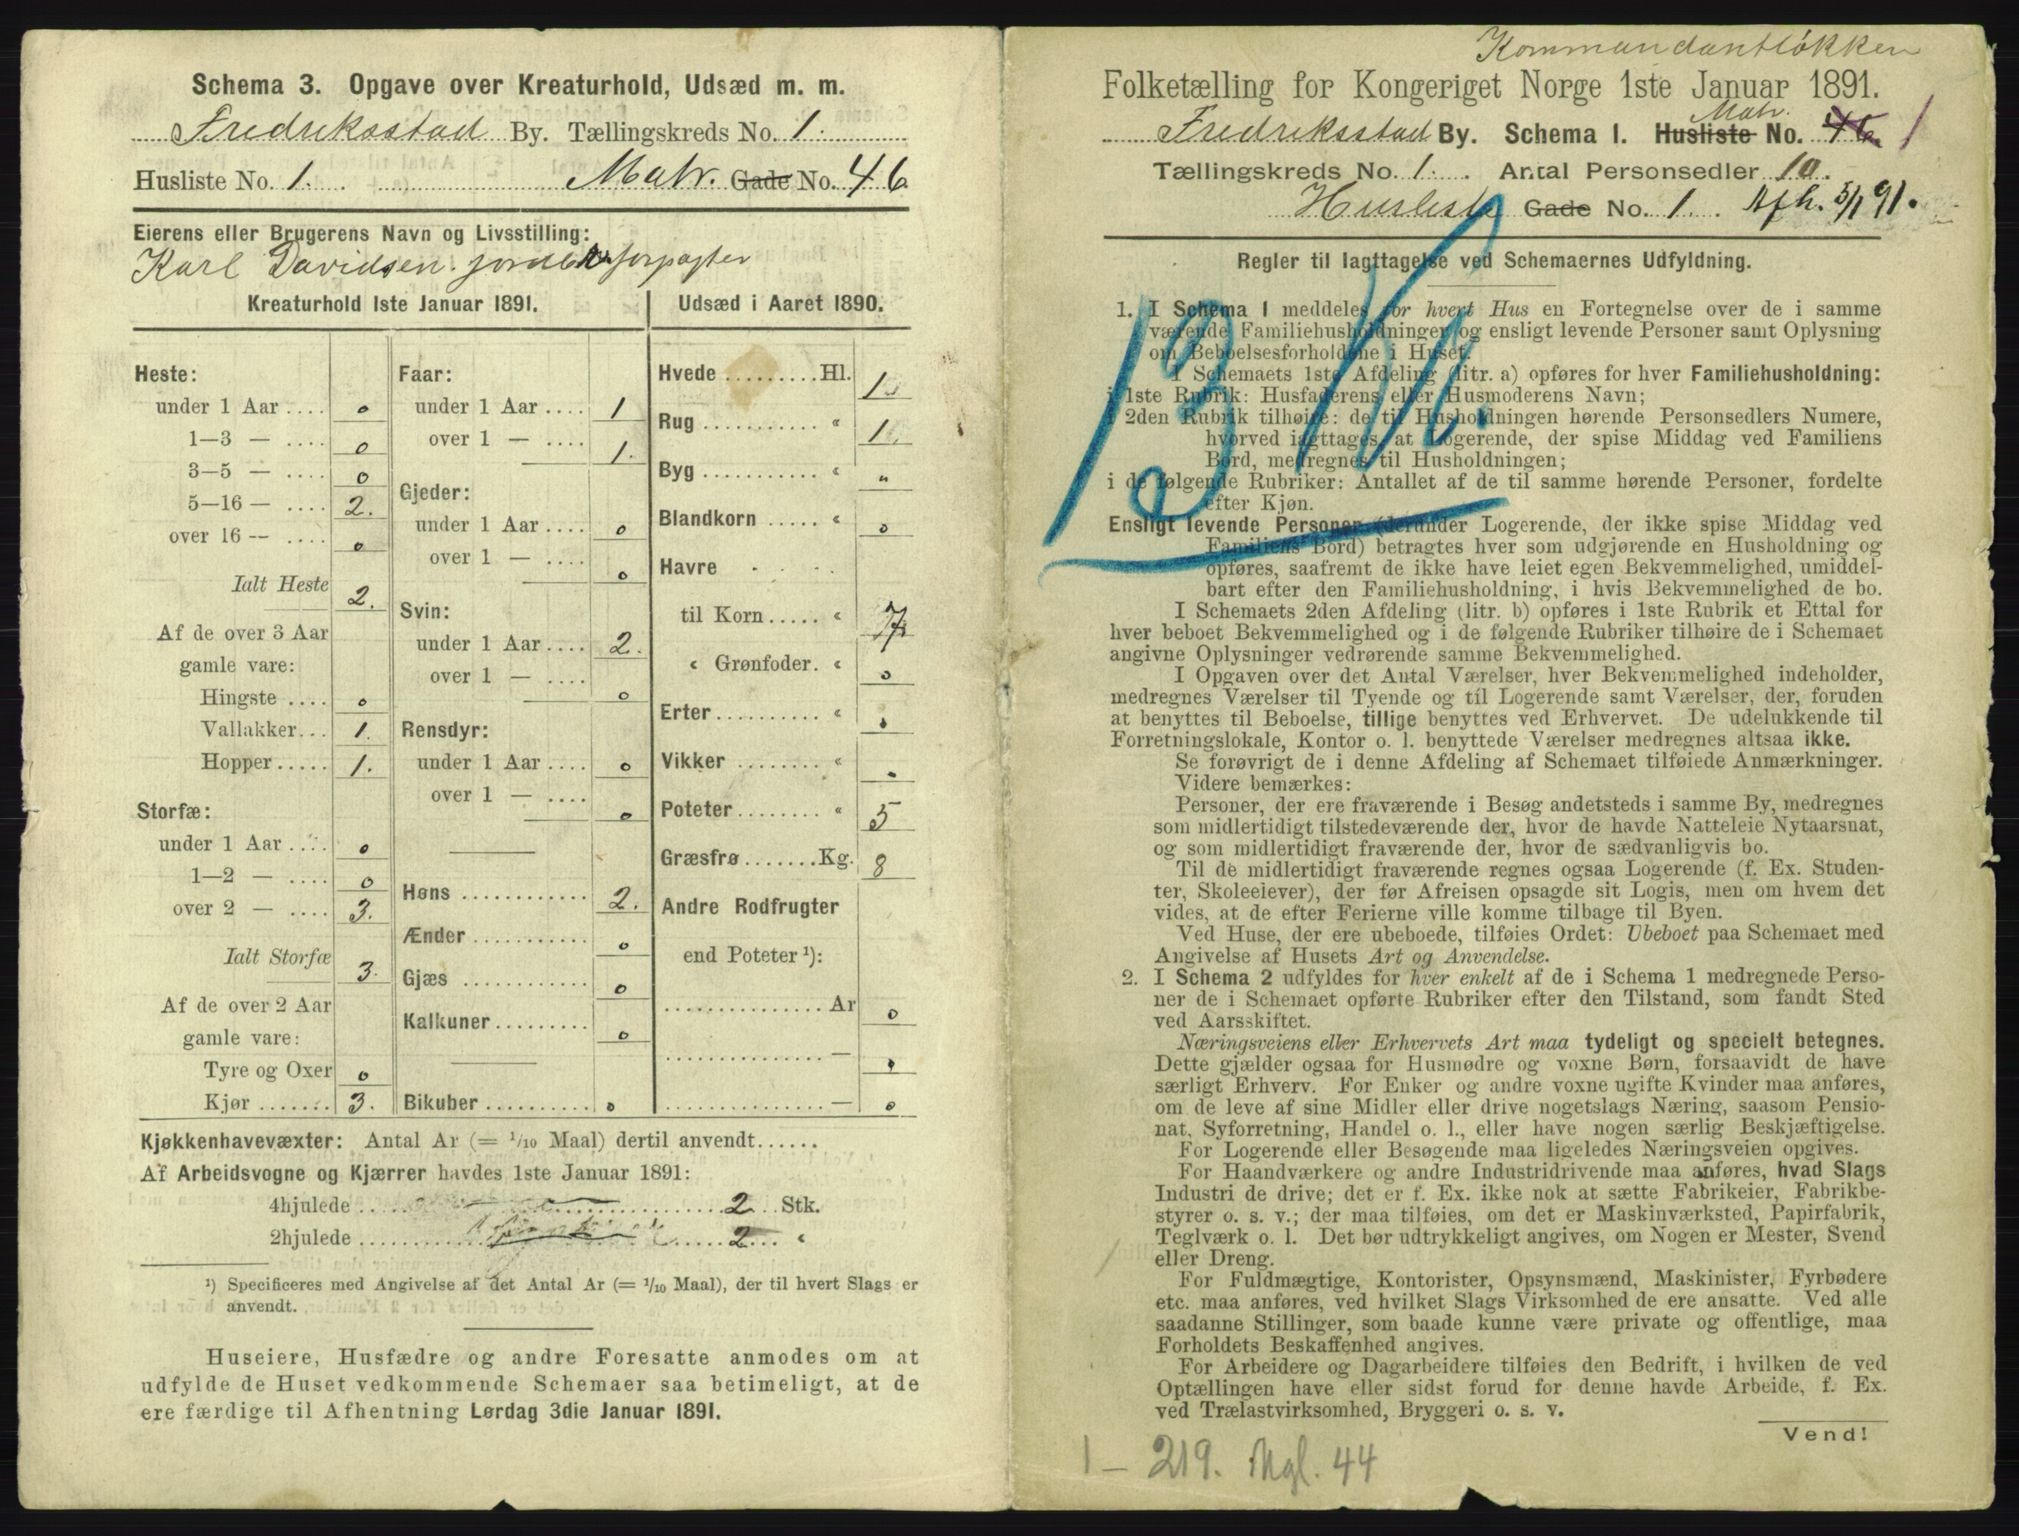 Schema 3. Opgave over Kreaturhold, Udsæd m. m.
Fredriksstad By. Tællingskreds No. 1.
Husliste No. 1. Matr. Gade No. 46
Eierens eller Brugerens Navn og Livsstilling:
Karl Davidsen. forpagter
Kreaturhold 1ste Januar 1891.
Heste:
under 1 Aar .... 0
1—3 — .... 0
3—5 — .... 0
5—16 — .... 2.
over 16 — .... 0
Ialt Heste 2.
Af de over 3 Aar
gamle vare:
Hingste .... 0
Vallakker... 1.
Hopper ..... 1.
Storfæ:
under 1 Aar .... 0
1—2 — .... 0
over 2 — .... 3.
Ialt Storfæ 3.
Af de over 2 Aar
gamle vare:
Tyre og Oxer 0
Kjør ....... 3.
Faar:
under 1 Aar .... 1
over 1 — .... 1.
Gjeder:
under 1 Aar .... 0
over 1 — .... 0
Svin:
under 1 Aar .... 2.
over 1 — .... 0
Rensdyr:
under 1 Aar .... 0
over 1 — .... 0
Høns ............ 2.
Ænder ........... 0
Gjæs ............ 0
Kalkuner ......... 0
Bikuber .......... 0
Udsæd i Aaret 1890.
Hvede ......... Hl. 1
Rug ........... « 1.
Byg ........... « "
Blandkorn ..... « 0
Havre
til Korn ..... « 7
« Grønfoder. « 0
Erter ......... « 0
Vikker ........ «
Poteter ........ « 5
Græsfrø ....... Kg. 8
Andre Rodfrugter
end Poteter ¹):
............... Ar 0
............... —
............... — 0
Kjøkkenhavevæxter: Antal Ar (= 1/10 Maal) dertil anvendt......
Af Arbeidsvogne og Kjærrer havdes 1ste Januar 1891:
4hjulede ..... 2 Stk.
2hjulede ..... 2 «
¹) Specificeres med Angivelse af det Antal Ar (= 1/10 Maal), der til hvert Slags er
anvendt.
Huseiere, Husfædre og andre Foresatte anmodes om at
udfylde de Huset vedkommende Schemaer saa betimeligt, at de
ere færdige til Afhentning Lørdag 3die Januar 1891.
Kommandantløkken
Folketælling for Kongeriget Norge 1ste Januar 1891.
Matr.
Fredriksstad By. Schema 1. Husliste No. 46. 1
Tællingskreds No. 1. Antal Personsedler 10.
Husliste Gade No. 1. Afh. 5/1 91.
13
Regler til Iagttagelse ved Schemaernes Udfyldning.
1. I Schema 1 meddeles for hvert Hus en Fortegnelse over de i samme
værende Familiehusholdninger og ensligt levende Personer samt Oplysning
om Beboelsesforholdene i Huset.
I Schemaets 1ste Afdeling (litr. a) opføres for hver Familiehusholdning:
i 1ste Rubrik: Husfaderens eller Husmoderens Navn;
i 2den Rubrik tilhøire: de til Husholdningen hørende Personsedlers Numere,
hvorved iagttages, at Logerende, der spise Middag ved Familiens
Bord, medregnes til Husholdningen;
i de følgende Rubriker: Antallet af de til samme hørende Personer, fordelte
efter Kjøn.
Ensligt levende Personer (derunder Logerende, der ikke spise Middag ved
Familiens Bord) betragtes hver som udgjørende en Husholdning og
opføres, saafremt de ikke have leiet egen Bekvemmelighed, umiddel-
bart efter den Familiehusholdning, i hvis Bekvemmelighed de bo.
I Schemaets 2den Afdeling (litr. b) opføres i 1ste Rubrik et Ettal for
hver beboet Bekvemmelighed og i de følgende Rubriker tilhøire de i Schemaet
angivne Oplysninger vedrørende samme Bekvemmelighed.
I Opgaven over det Antal Værelser, hver Bekvemmelighed indeholder,
medregnes Værelser til Tyende og til Logerende samt Værelser, der, foruden
at benyttes til Beboelse, tillige benyttes ved Erhvervet. De udelukkende til
Forretningslokale, Kontor o. l. benyttede Værelser medregnes altsaa ikke.
Se forøvrigt de i denne Afdeling af Schemaet tilføiede Anmærkninger.
Videre bemærkes:
Personer, der ere fraværende i Besøg andetsteds i samme By, medregnes
som midlertidigt tilstedeværende der, hvor de havde Natteleie Nytaarsnat,
og som midlertidigt fraværende der, hvor de sædvanligvis bo.
Til de midlertidigt fraværende regnes ogsaa Logerende (f. Ex. Studen-
ter, Skoleelever), der før Afreisen opsagde sit Logis, men om hvem det
vides, at de efter Ferierne ville komme tilbage til Byen.
Ved Huse, der ere ubeboede, tilføies Ordet: Ubeboet paa Schemaet med
Angivelse af Husets Art og Anvendelse.
2. I Schema 2 udfyldes for hver enkelt af de i Schema 1 medregnede Perso-
ner de i Schemaet opførte Rubriker efter den Tilstand, som fandt Sted
ved Aarsskiftet.
Næringsveiens eller Erhvervets Art maa tydeligt og specielt betegnes.
Dette gjælder ogsaa for Husmødre og voxne Børn, forsaavidt de have
særligt Erhverv. For Enker og andre voxne ugifte Kvinder maa anføres,
om de leve af sine Midler eller drive nogetslags Næring, saasom Pensio-
nat, Syforretning, Handel o. l., eller have nogen særlig Beskjæftigelse.
For Logerende eller Besøgende maa ligeledes Næringsveien opgives.
For Haandværkere og andre Industridrivende maa anføres, hvad Slags
Industri de drive; det er f. Ex. ikke nok at sætte Fabrikeier, Fabrikbe-
styrer o. s. v.; der maa tilføies, om det er Maskinværksted, Papirfabrik,
Teglværk o. l. Det bør udtrykkeligt angives, om Nogen er Mester, Svend
eller Dreng.
For Fuldmægtige, Kontorister, Opsynsmænd, Maskinister, Fyrbødere
etc. maa anføres, ved hvilket Slags Virksomhed de ere ansatte. Ved alle
saadanne Stillinger, som baade kunne være private og offentlige, maa
Forholdets Beskaffenhed angives.
For Arbeidere og Dagarbeidere tilføies den Bedrift, i hvilken de ved
Optællingen have eller sidst forud for denne havde Arbeide, f. Ex.
ved Trælastvirksomhed, Bryggeri o. s. v.
Vend!
1 — 219. Mgl. 44